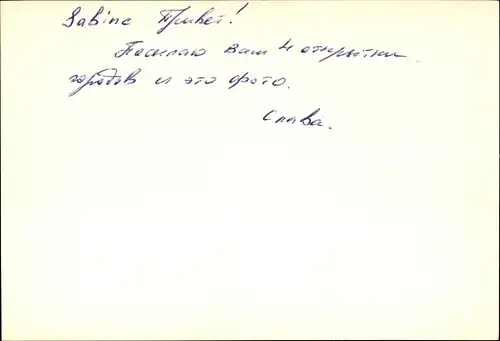 Sabine Привет!
Посылаю вам 4 открытки
городов и это фото.
Слава.